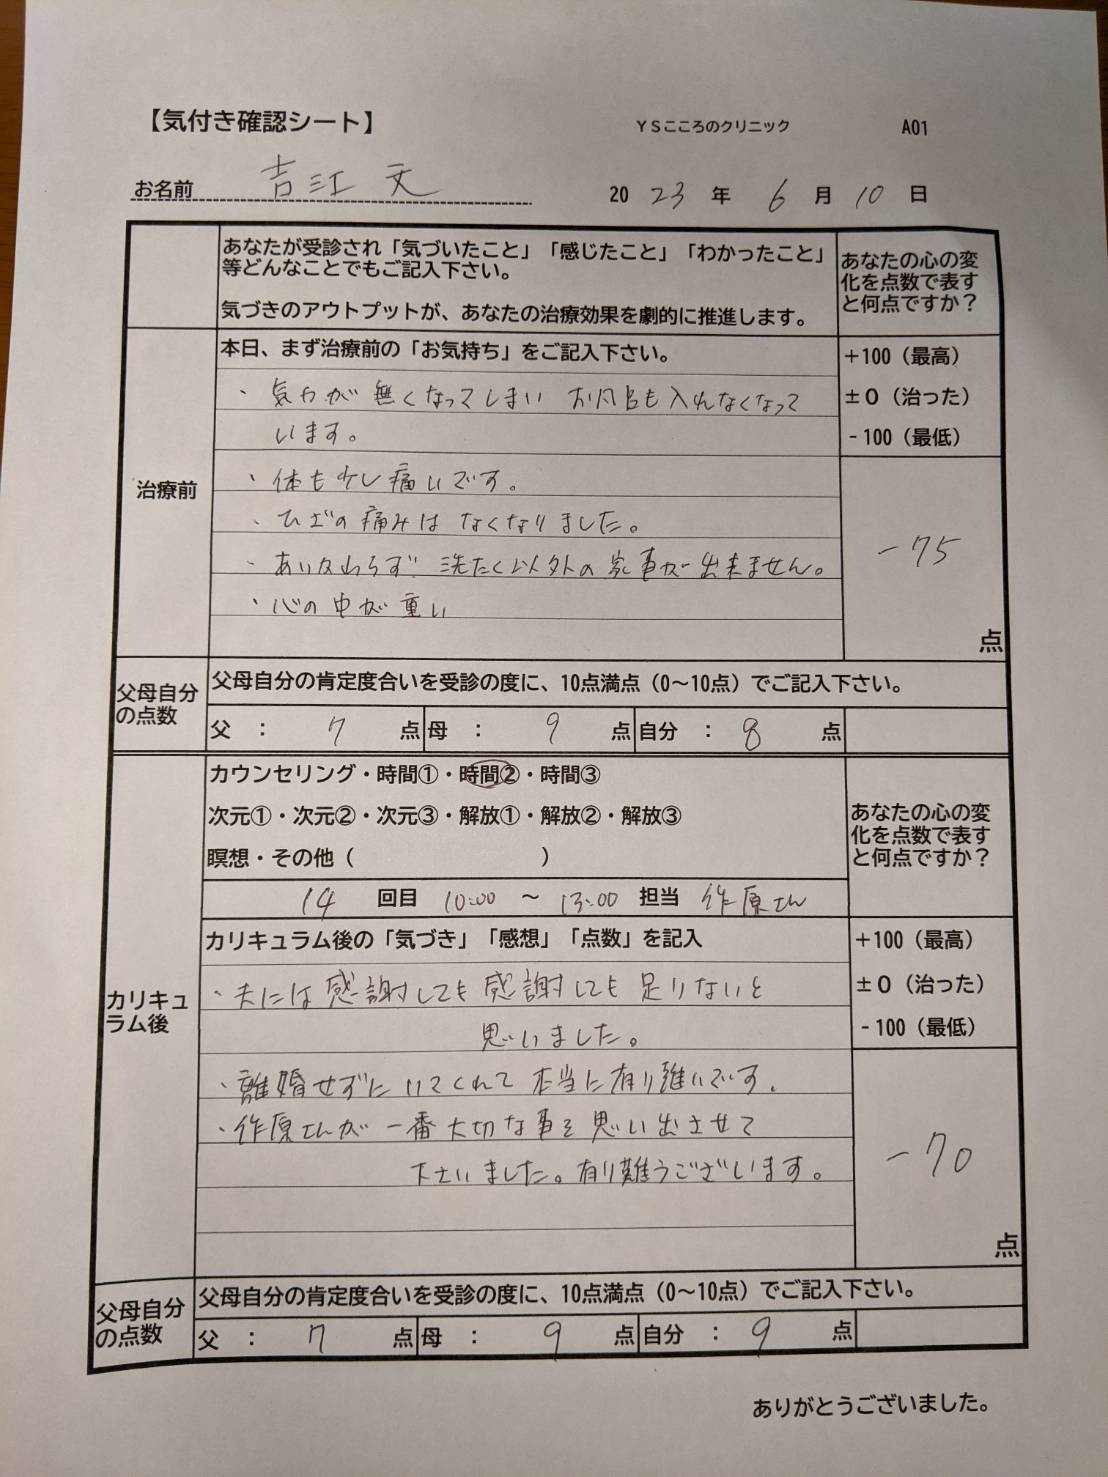 【気付き確認シート】 YSこころのクリニック A01
お名前 吉江 文 2023年 6月 10日
あなたが受診され「気づいたこと」「感じたこと」「わかったこと」
等どんなことでもご記入下さい。
気づきのアウトプットが、あなたの治療効果を劇的に推進します。
あなたの心の変
化を点数で表す
と何点ですか?
治療前
本日、まず治療前の「お気持ち」をご記入下さい。
・気力が無くなってしまいお風呂も入れなくなって
います。
・体も少し痛いです。
・ひざの痛みはなくなりました。
・あいかわらず洗たく以外の家事が出来ません。
・心の中が重い
+100(最高)
±0(治った)
-100(最低)
-75
点
父母自分
の点数
父母自分の肯定度合いを受診の度に、10点満点(0~10点)でご記入下さい。
父 : 7 点 母 : 9 点 自分 : 8 点
カリキュ
ラム後
カウンセリング・時間①・時間②・時間③
次元①・次元②・次元③・解放①・解放②・解放③
瞑想・その他( )
14 回目 10:00 ~ 13:00 担当 作原さん
あなたの心の変
化を点数で表す
と何点ですか?
カリキュラム後の「気づき」「感想」「点数」を記入
・夫には感謝しても感謝しても足りないと
思いました。
・離婚せずにいてくれて本当に有り難いです。
・作原さんが一番大切な事を思い出させて
下さいました。有り難うございます。
+100(最高)
±0(治った)
-100(最低)
-70
点
父母自分
の点数
父母自分の肯定度合いを受診の度に、10点満点(0~10点)でご記入下さい。
父 : 7 点 母 : 9 点 自分 : 9 点
ありがとうございました。